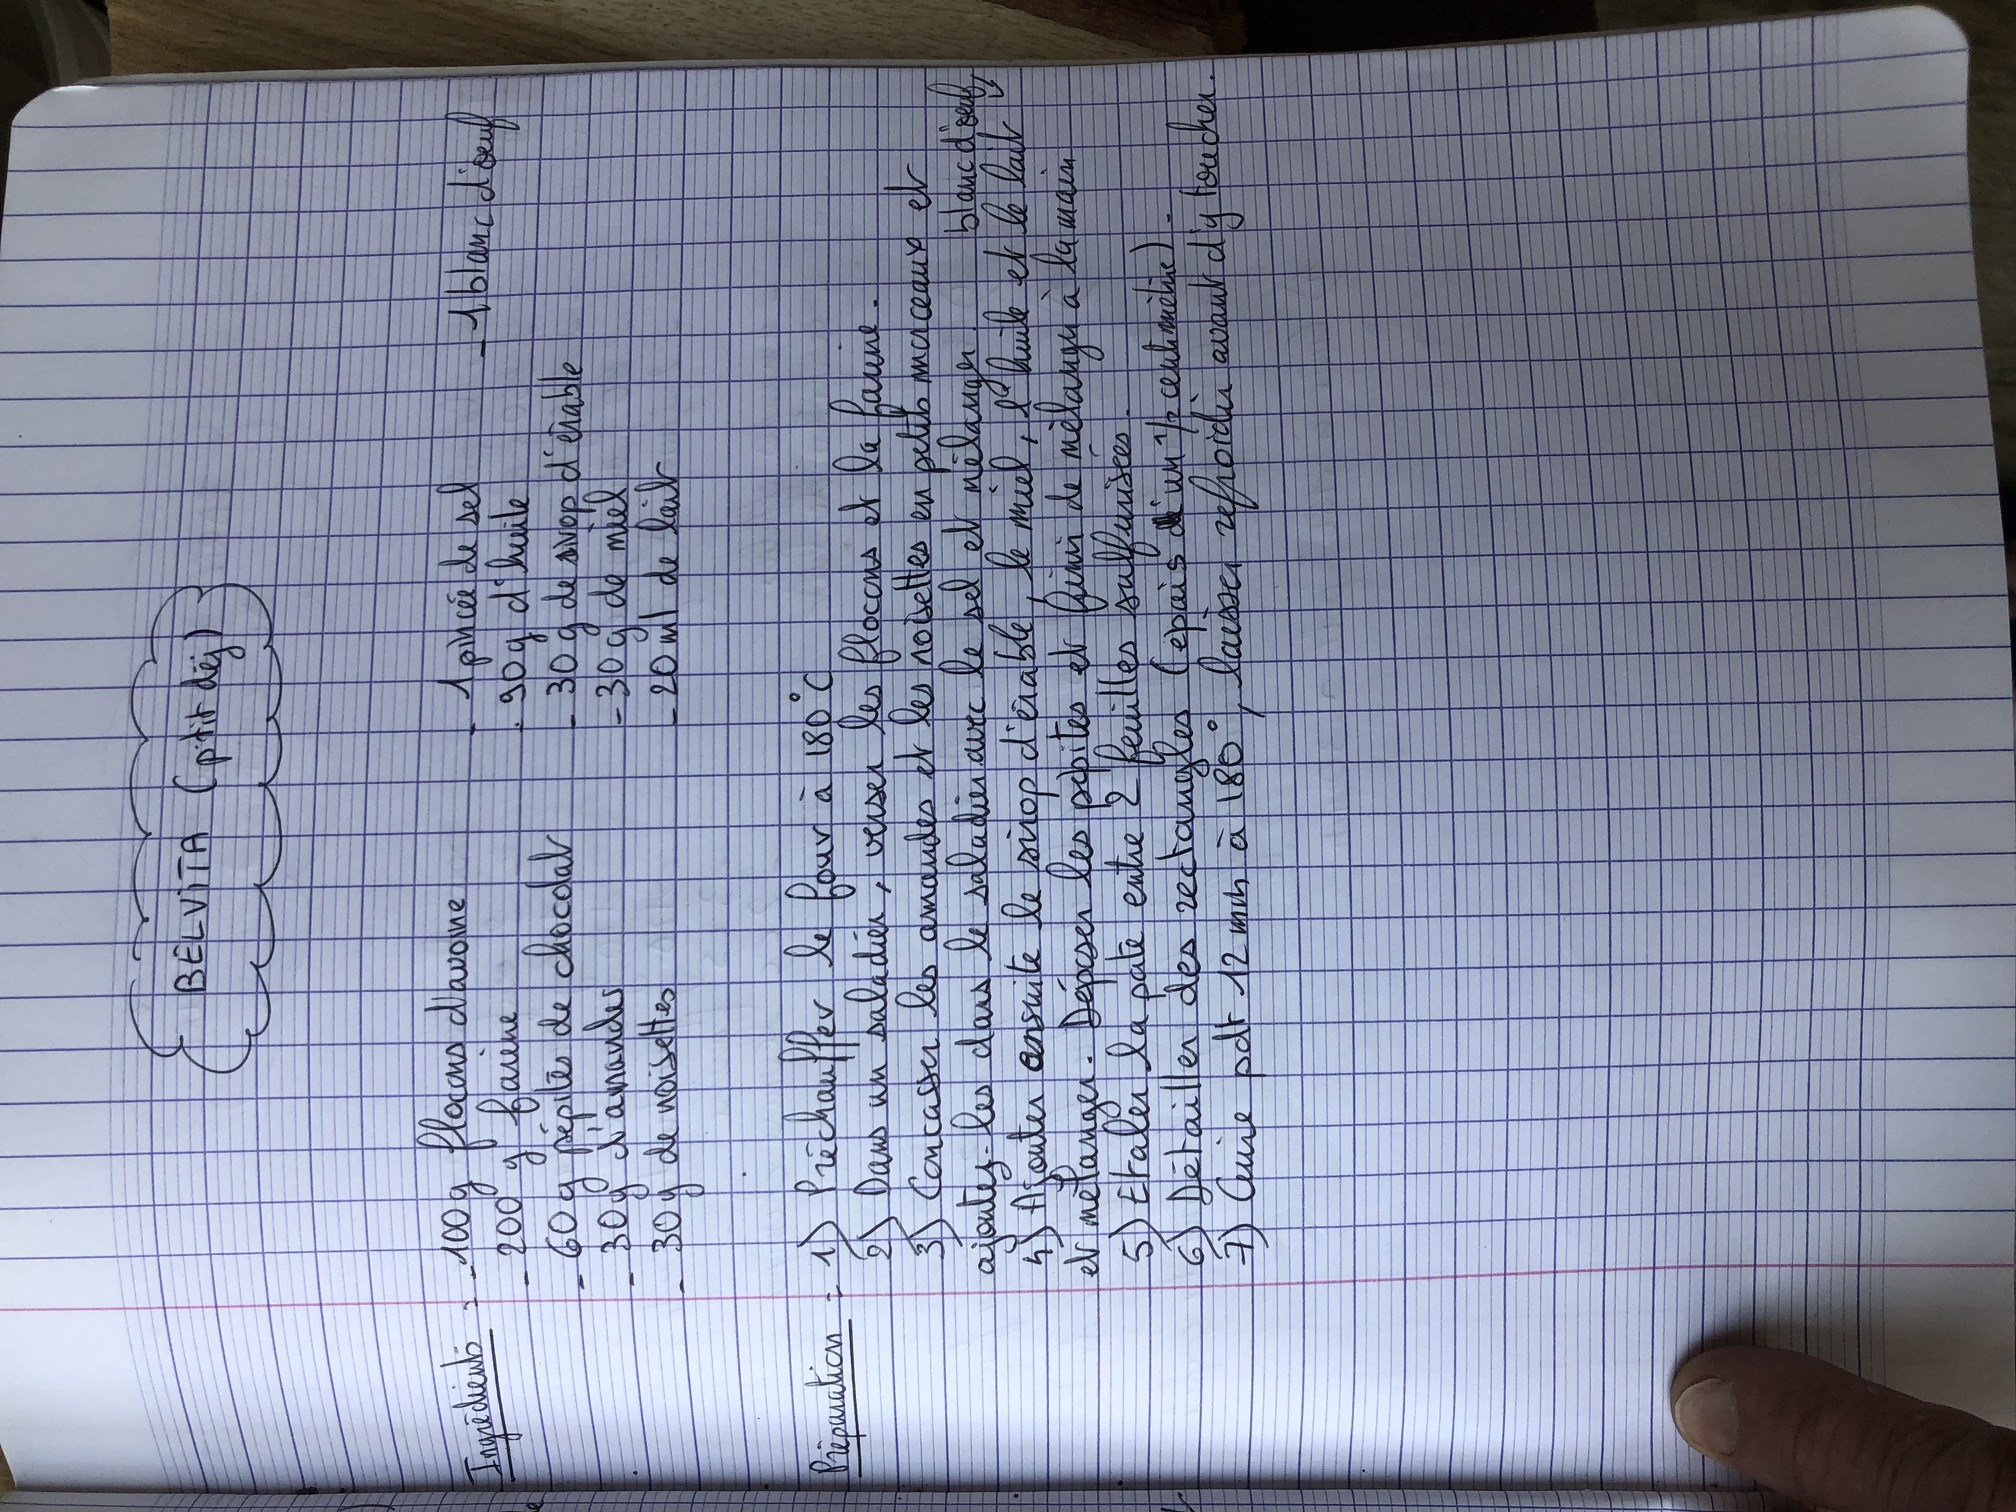 BELVITA (p'tit déj)
Ingrédients : - 100g flocons d'avoine - 1 pincée de sel - 1 blanc d'oeuf
- 200 g farine - 90g d'huile
- 60g pépites de chocolat - 30g de sirop d'érable
- 30g d'amandes - 30g de miel
- 30g de noisettes - 20 ml de lait
Préparation : 1) Préchauffer le four à 180°C
2) Dans un saladier, verser les flocons et la farine.
3) Concasser les amandes et les noisettes en petits morceaux et
ajoutez-les dans le saladier avec le sel et mélanger. blanc d'oeuf
4) Ajouter ensuite le sirop d'érable, le miel, l'huile et le lait
et mélanger. Déposer les pépites et finir de mélanger à la main
5) Etaler la pate entre 2 feuilles sulfurisées.
6) Détailler des rectangles (épais d'un 1/2 centimètre).
7) Cuire pdt 12 mn à 180°, laisser refroidir avant d'y toucher.